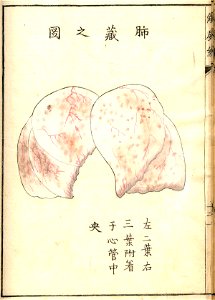 肺藏之圖
左二葉右
三葉附着
于心管中
央